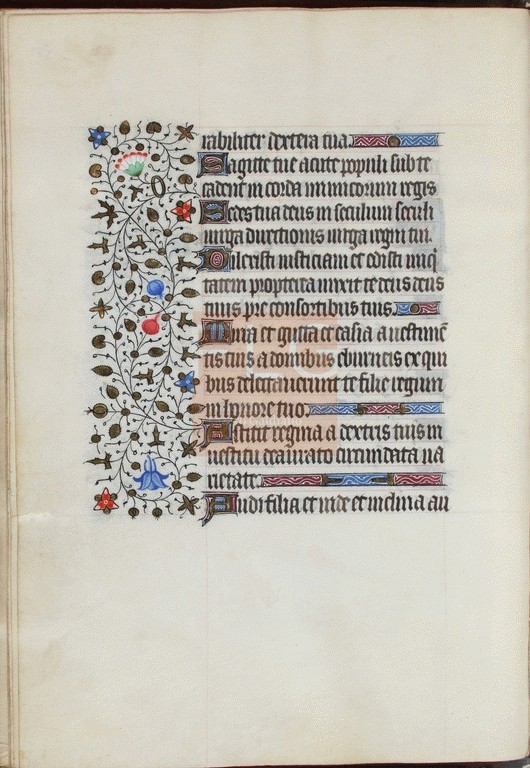 rabiliter dextera tua.
Sagitte tue acute populi sub te
cadent in corda inimicorum regis
Sedes tua deus in seculum seculi
uirga directionis uirga regni tui.
Dilexisti iusticiam et odisti iniq
tatem propterea unxit te deus deus
tuus pre consortibus tuis.
Mirra et gutta et casia a uestimen
tis tuis a domibus eburneis ex qui
bus delectauerunt te filie regum
in honore tuo.
Astitit regina a dextris tuis in
uestitu deaurato circumdata ua
rietate.
Audi filia et uide et inclina au